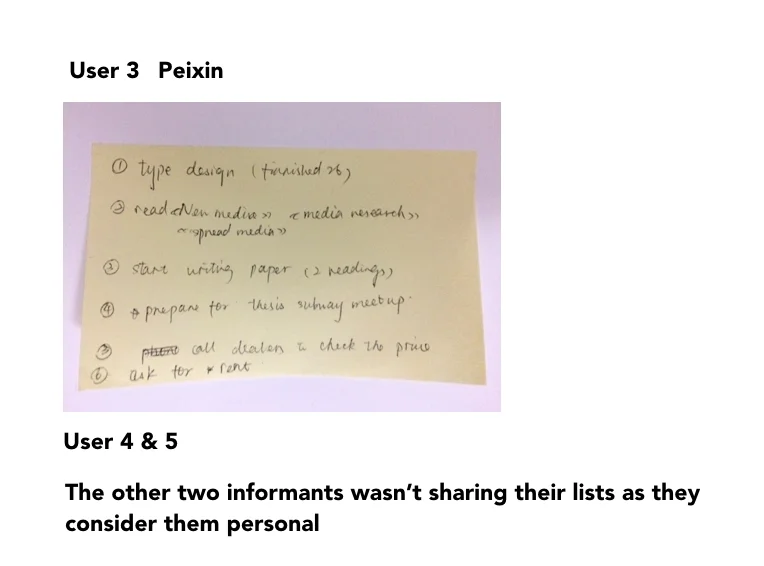 User 3 Peixin
① type design (finished 26)
② read <New media>> <media research>>
<spread media>>
③ start writing paper (2 readings)
④ prepare for thesis subway meetup.
⑤ call dealers to check the price
⑥ ask for rent
User 4 & 5
The other two informants wasn't sharing their lists as they
consider them personal